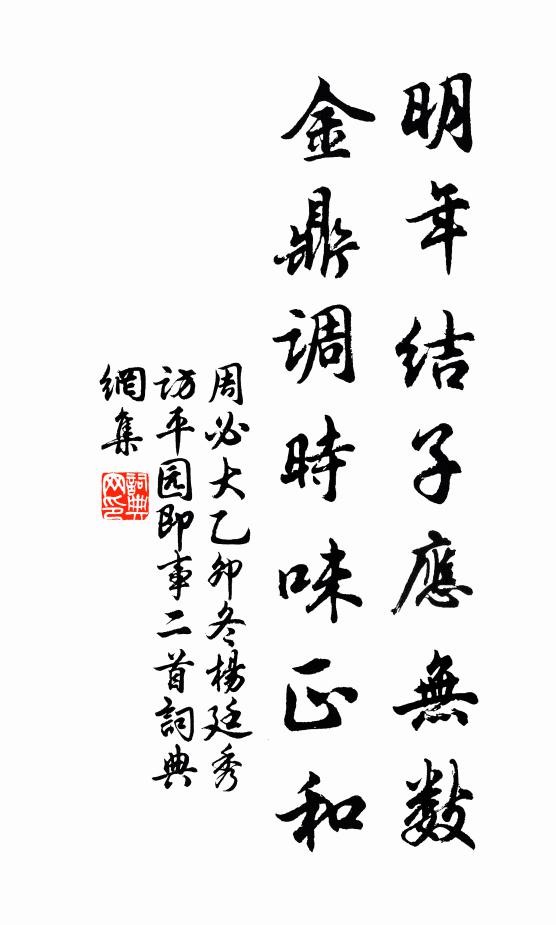 明年結子應無数
金鼎調時味正和
周必大乙卯冬楊廷秀
訪平园即事二首詞典
網集
詞典
网印